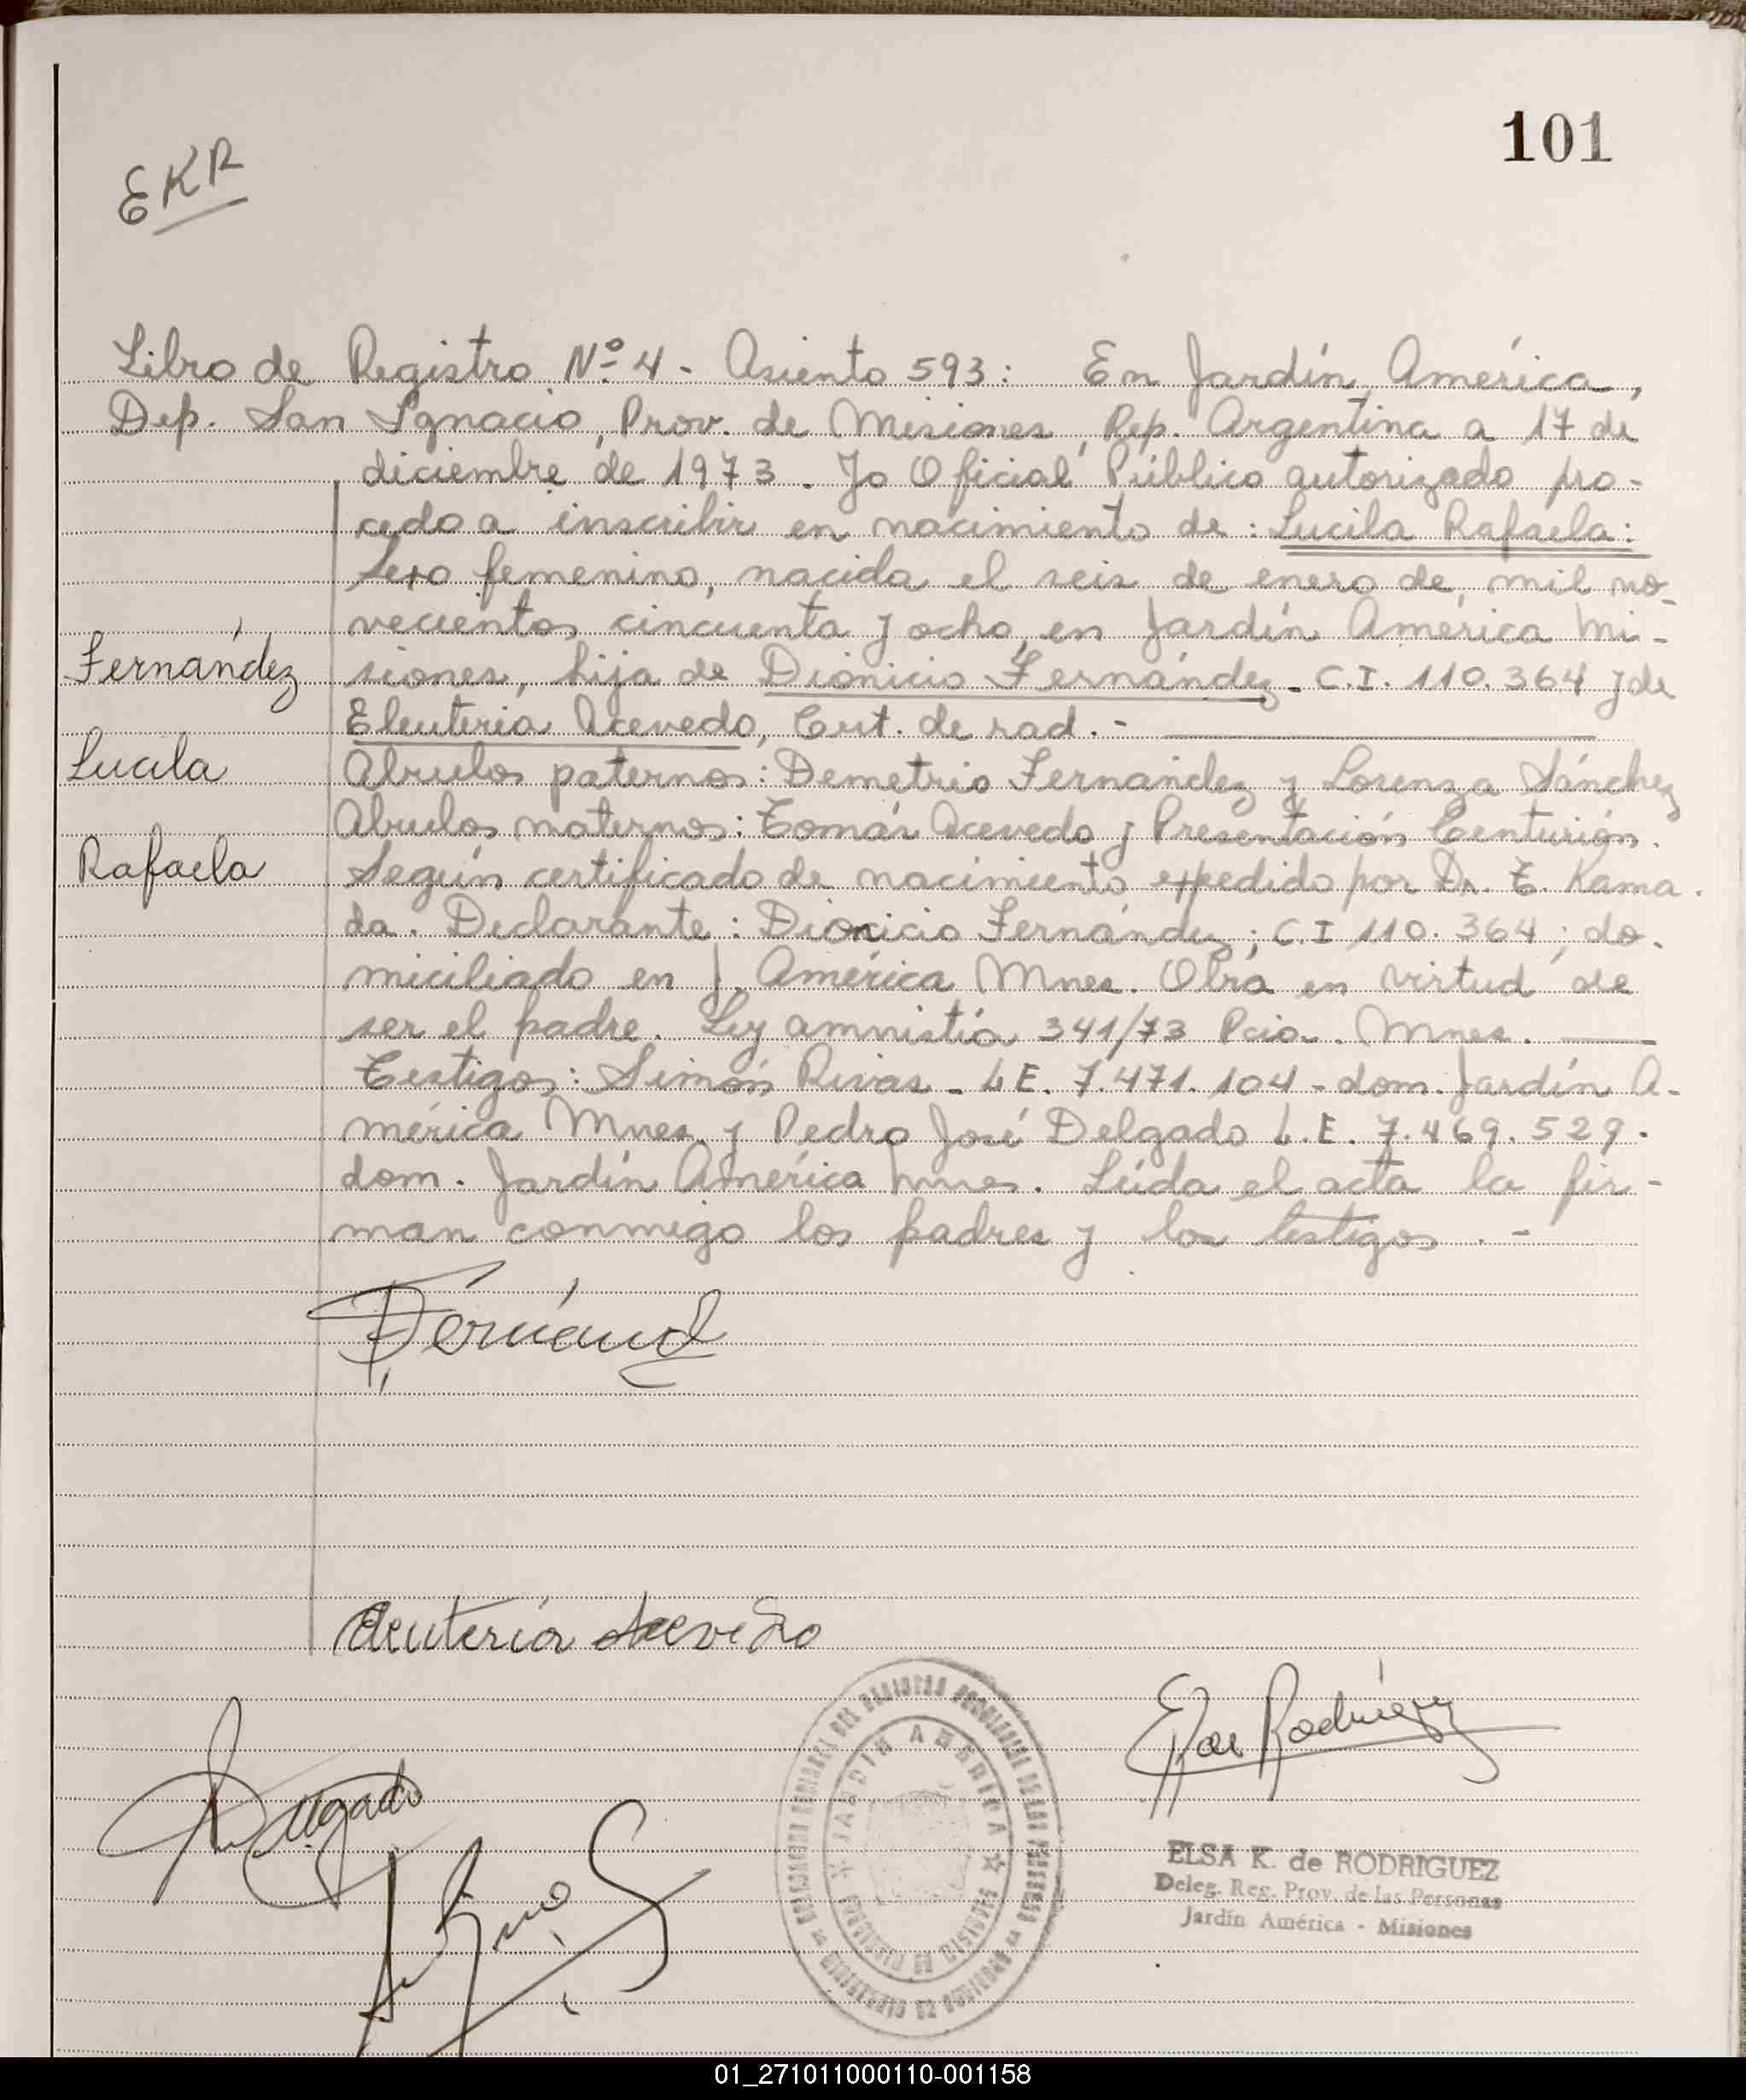 101
EKR
Libro de Registro Nº 4 - Asiento 593: En Jardín América,
Dep. San Ignacio, Prov. de Misiones, Rep. Argentina a 17 de
diciembre de 1973. Yo Oficial Público autorizado pro-
cedo a inscribir en nacimiento de: Lucila Rafaela:
Sexo femenino, nacida el seis de enero de mil no-
vecientos cincuenta y ocho, en Jardín América Mi-
Fernández
siones, hija de Dionicio Fernández - C.I. 110.364 y de
Eleuteria Acevedo, Cert. de rad. -
Lucila
Abuelos paternos: Demetrio Fernández y Lorenza Sánchez
Abuelos maternos: Tomás Acevedo y Presentación Centurión.
Rafaela
Según certificado de nacimiento expedido por Dr. T. Kama.
da. Declarante: Dionicio Fernández; C.I 110.364; do.
miciliado en J. América Mnes. Obra en virtud de
ser el padre. Ley amnistía 341/73 Pcia. Mnes.
Testigos: Simón Rivas - L.E. 7.471.104 - dom. Jardín A-
mérica Mnes y Pedro José Delgado L.E. 7.469.529.
dom. Jardín América Mnes. Leída el acta la fir-
man conmigo los padres y los testigos. -
Eleuteria Acevedo
Delgado
JARDIN AMERICA
ELSA K. de RODRIGUEZ
Deleg. Reg. Prov. de las Personas
Jardín América - Misiones
01_271011000110-001158